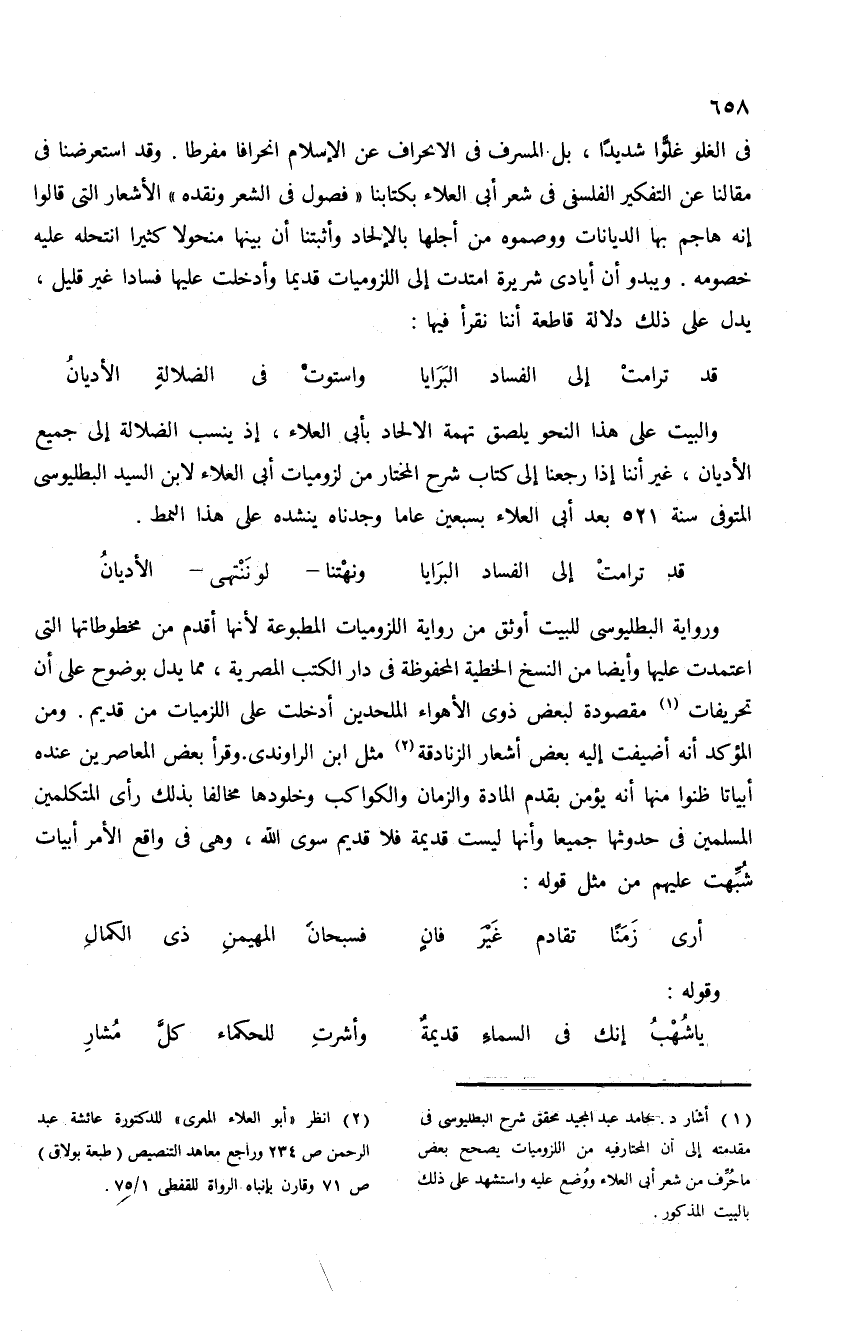 ٦٥٨
فى الغلو غلوًّا شديدًا ، بل المسرف فى الانحراف عن الإسلام انحرافا مفرطا . وقد استعرضنا فى
مقالنا عن التفكير الفلسفى فى شعر أبى العلاء بكتابنا « فصول فى الشعر ونقده » الأشعار التى قالوا
إنه هاجم بها الديانات ووصموه من أجلها بالإلحاد وأثبتنا أن بينها منحولا كثيرا انتحله عليه
خصومه . ويبدو أن أيادى شريرة امتدت إلى اللزوميات قديما وأدخلت عليها فسادا غير قليل ،
يدل على ذلك دلالة قاطعة أننا نقرأ فيها :
قد ترامتْ إلى الفساد البَرَايا واستوتْ فى الضلالةِ الأديانُ
والبيت على هذا النحو يلصق تهمة الالحاد بأبى العلاء ، إذ ينسب الضلالة إلى جميع
الأديان ، غير أننا إذا رجعنا إلى كتاب شرح المختار من لزوميات أبى العلاء لابن السيد البطليوسى
المتوفى سنة ٥٢١ بعد أبى العلاء بسبعين عاما وجدناه ينشده على هذا النمط .
قد ترامتْ إلى الفساد البرَايا ونهْتنا – لو نَنْتهى – الأديانُ
ورواية البطليوسى للبيت أوثق من رواية اللزوميات المطبوعة لأنها أقدم من مخطوطاتها التى
اعتمدت عليها وأيضا من النسخ الخطية المحفوظة فى دار الكتب المصرية ، مما يدل بوضوح على أن
تحريفات (١) مقصودة لبعض ذوى الأهواء الملحدين أدخلت على اللزميات من قديم . ومن
المؤكد أنه أضيفت إليه بعض أشعار الزنادقة (٢) مثل ابن الراوندى.وقرأ بعض المعاصرين عنده
أبياتا ظنوا منها أنه يؤمن بقدم المادة والزمان والكواكب وخلودها مخالفا بذلك رأى المتكلمين
المسلمين فى حدوثها جميعا وأنها ليست قديمة فلا قديم سوى الله ، وهى فى واقع الأمر أبيات
شُبِّهت عليهم من مثل قوله :
أرى زَمَنًا تقادم غَيْرَ فانٍ فسبحانَ المهيمنِ ذى الكمالِ
وقوله :
ياشُهْبُ إنك فى السماءِ قديمةٌ وأشرتِ للحكماء كلَّ مُشارِ
(١) أشار د. حامد عبد المجيد محقق شرح البطليوسى فى
مقدمته إلى أن المختارفيه من اللزوميات يصحح بعض
ماحُرِّف من شعر أبى العلاء ووُضع عليه واستشهد على ذلك
بالبيت المذكور .
(٢) انظر «أبو العلاء المعرى» للدكتورة عائشة عبد
الرحمن ص ٢٣٤ وراجع معاهد التنصيص ( طبعة بولاق )
ص ٧١ وقارن بإنباه الرواة للقفطى ٧٥/١ .